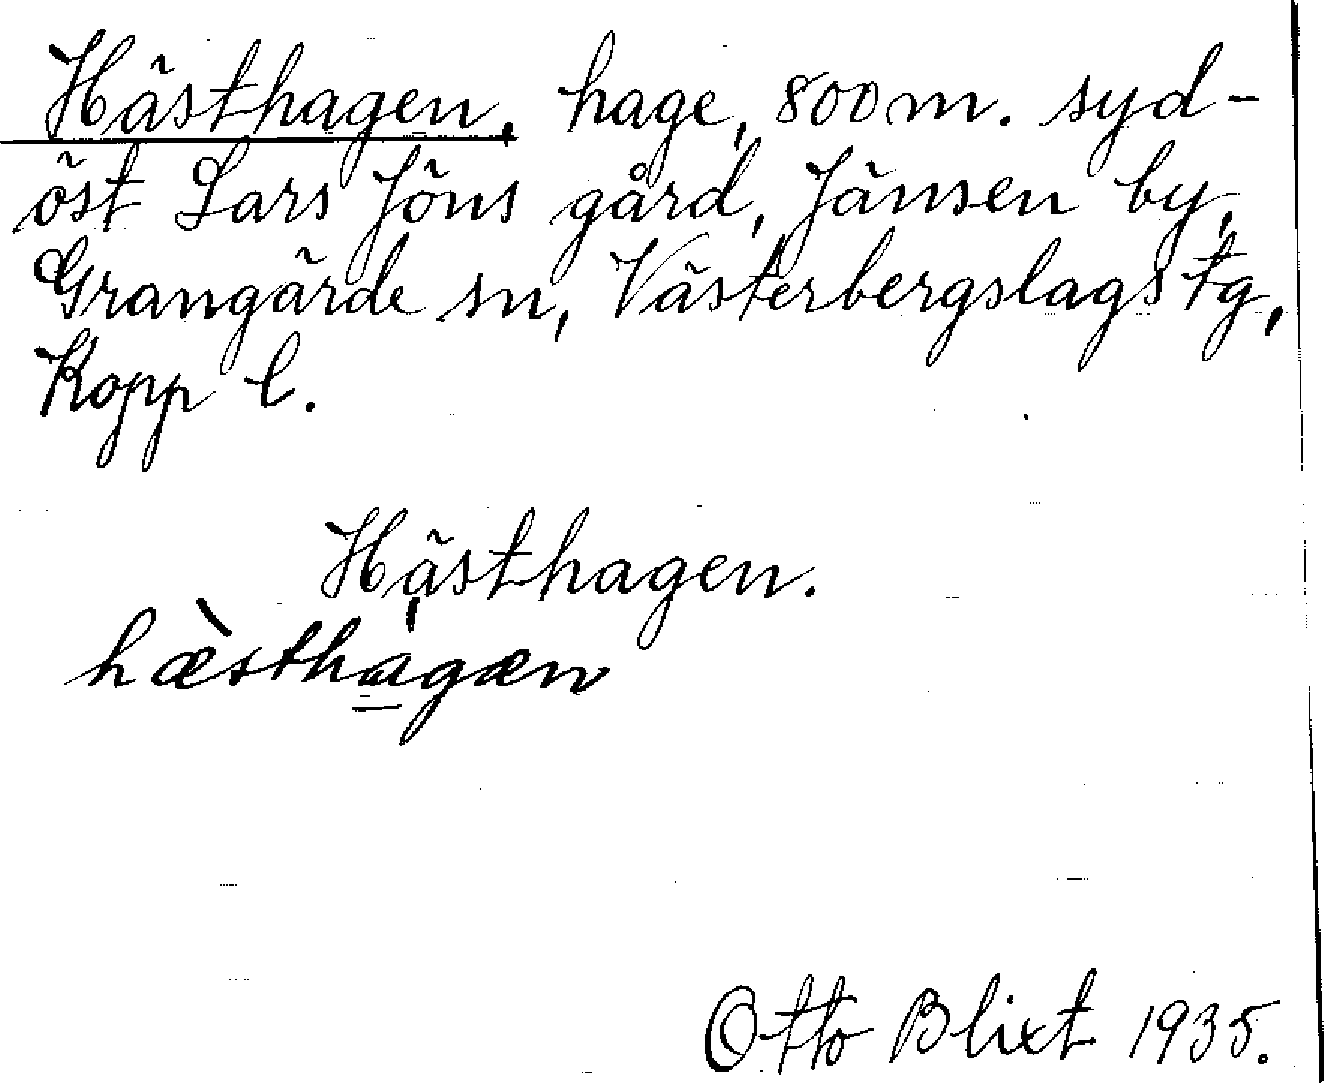 Hästhagen, hage, 800 m. syd-
öst Lars Jöns gård, Jänsen by,
Grangärde sn, Västerbergslags tg,
Kopp l.
Hästhagen.
hæ̀sthagæn
Otto Blixt 1935.